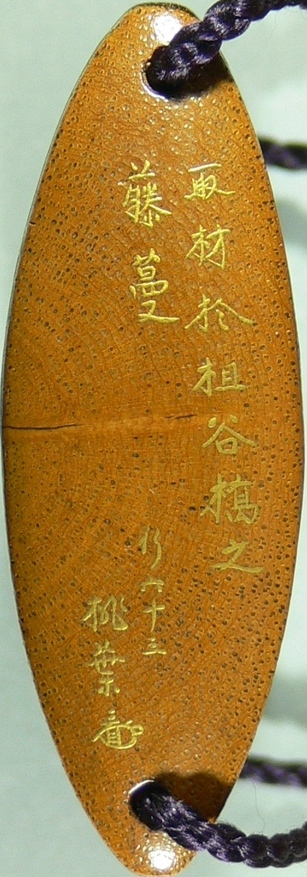 取材於祖谷橋之
藤蔓
行六十三
桃葉